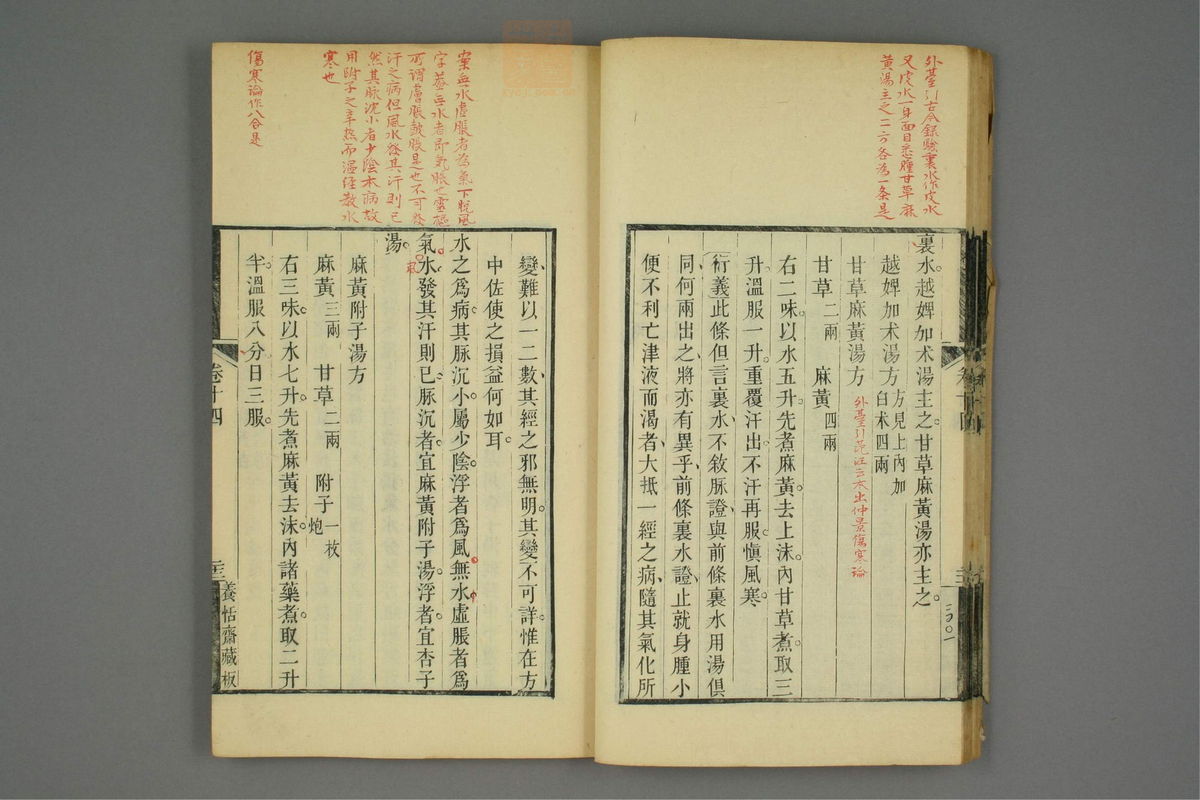 外臺引古今錄驗裏水作皮水
又皮水一身面目悉腫甘草麻
黃湯主之二方各為一条是
裏水越婢加术湯主之甘草麻黃湯亦主之
越婢加术湯方方見上內加
白术四兩
甘草麻黃湯方
外臺引范汪云本出仲景傷寒論
甘草二兩 麻黃四兩
右二味以水五升先煮麻黃去上沫內甘草煮取三
升溫服一升重覆汗出不汗再服愼風寒
衍義此條但言裏水不敘脈證與前條裏水用湯俱
同何兩出之將亦有異乎前條裏水證止就身腫小
便不利亡津液而渴者大抵一經之病隨其氣化所
卷十四
二〇一
案無水虛脹者為氣下脫風
字蓋無水者即氣脹也靈樞
可謂膚脹鼓脹是也不可發
汗之病但風水發其汗則已
然其脉沈小者少陰本病故
用附子之辛熱而溫經散水
寒也
傷寒論作八合是
變難以一二數其經之邪無明其變不可詳惟在方
中佐使之損益何如耳
水之爲病其脈沉小屬少陰浮者爲風無水虛脹者爲
氣水發其汗則已脈沉者宜麻黃附子湯浮者宜杏子
湯
麻黃附子湯方
麻黃三兩 甘草二兩 附子一枚
炮
右三味以水七升先煮麻黃去沫內諸藥煮取二升
半溫服八分日三服
卷十四
養恬齋藏板